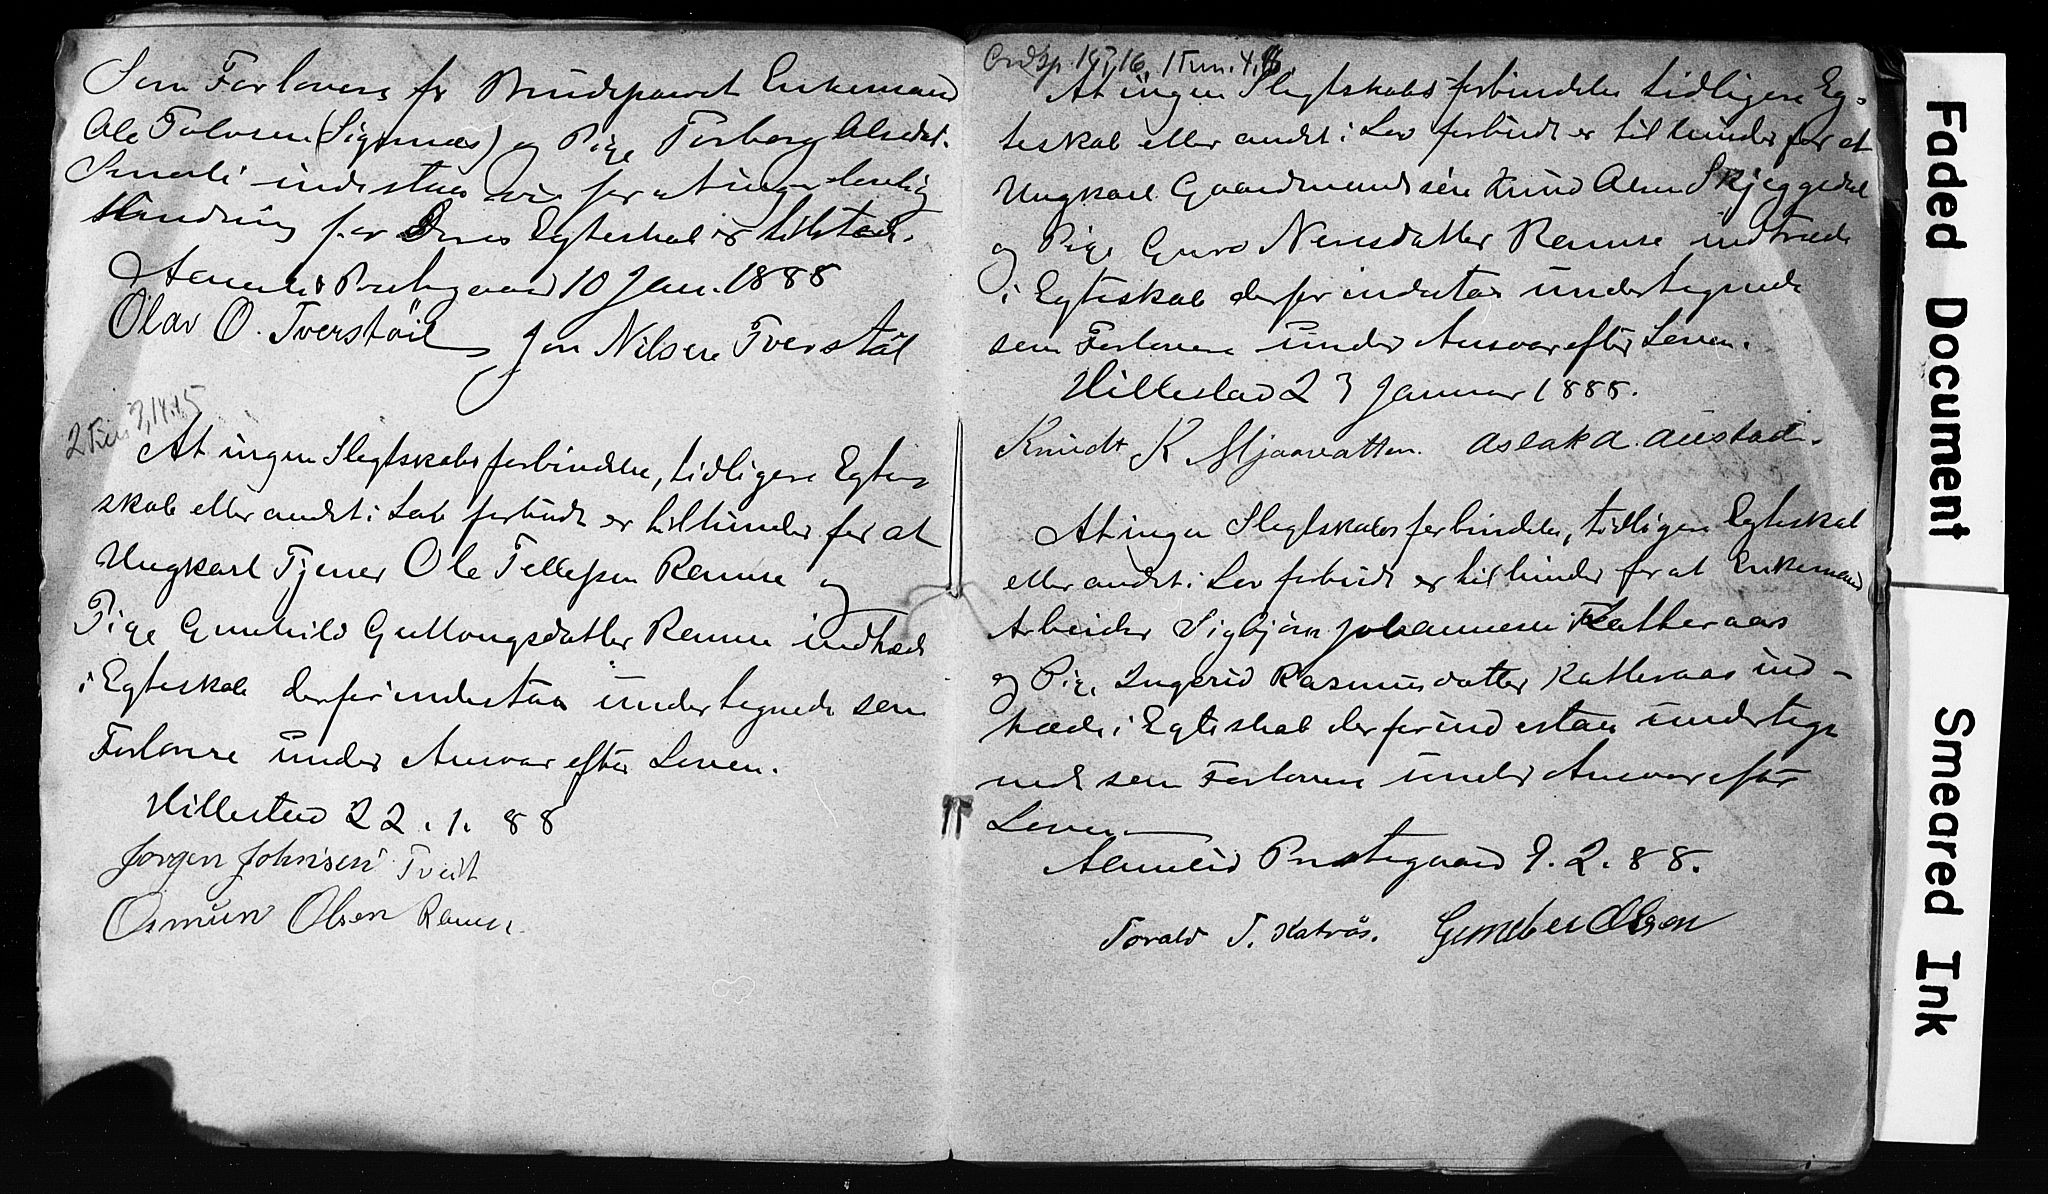 Som Forlovere for Brudeparret Enkemand
Ole Tolvsen (Sigernæs) og Pige Torborg Olsdat.
Smeli indestaar vi for at ingen lovlig
Hindring for Deres Egteskab er tilstede.
Aamlid Prestegaard 10 Jan. 1888
Olav O. Tverstöil Jon Nilsen Tverstöl
2 Tim. 3,14.15
At ingen Slegtskabsforbindelse, tidligere Egte-
skab eller andet i Lov forbudt er til hinder for at
Ungkarl Tjener Ole Tellefsen Ramse og
Pige Gunhild Guttormsdatter Ramse indtræde
i Egteskab derfor indestaa undertegnede som
Forlovere under Ansvar efter Loven.
Hillestad 22.1.88
Jørgen Johnsen Tveit
Osmund Olsen Ramse
Ordsp. 14,16. 1 Tim. 4,8.
At ingen Slegtskabsforbindelse tidligere Eg-
teskab eller andet i Lov forbudt er til hinder for at
Ungkarl Gaardmandssøn Knud Olsen Skjeggedal
og Pige Guro Nensdatter Ramse indtræde
i Egteskab derfor indestaa undertegnede
som Forlovere under Ansvar efter Loven.
Hillestad 23 Januar 1888.
Knudt K Mjaavatten. Aslak A. Austad.
At ingen Slegtskabsforbindelse, tidligere Egteskab
eller andet i Lov forbudt er til hinder for at Enkemand
Arbeider Sigbjörn Johannesen Katteraas
og Pige Ingerid Rasmusdatter Katteraas ind-
træde i Egteskab derfor indestaa undertegn
nede som Forlovere under Ansvar efter
Loven
Aamlid Prestegaard 9.2.88.
Torald T. Katrås. Gunsteen Olsen
Faded Document
Smeared Ink